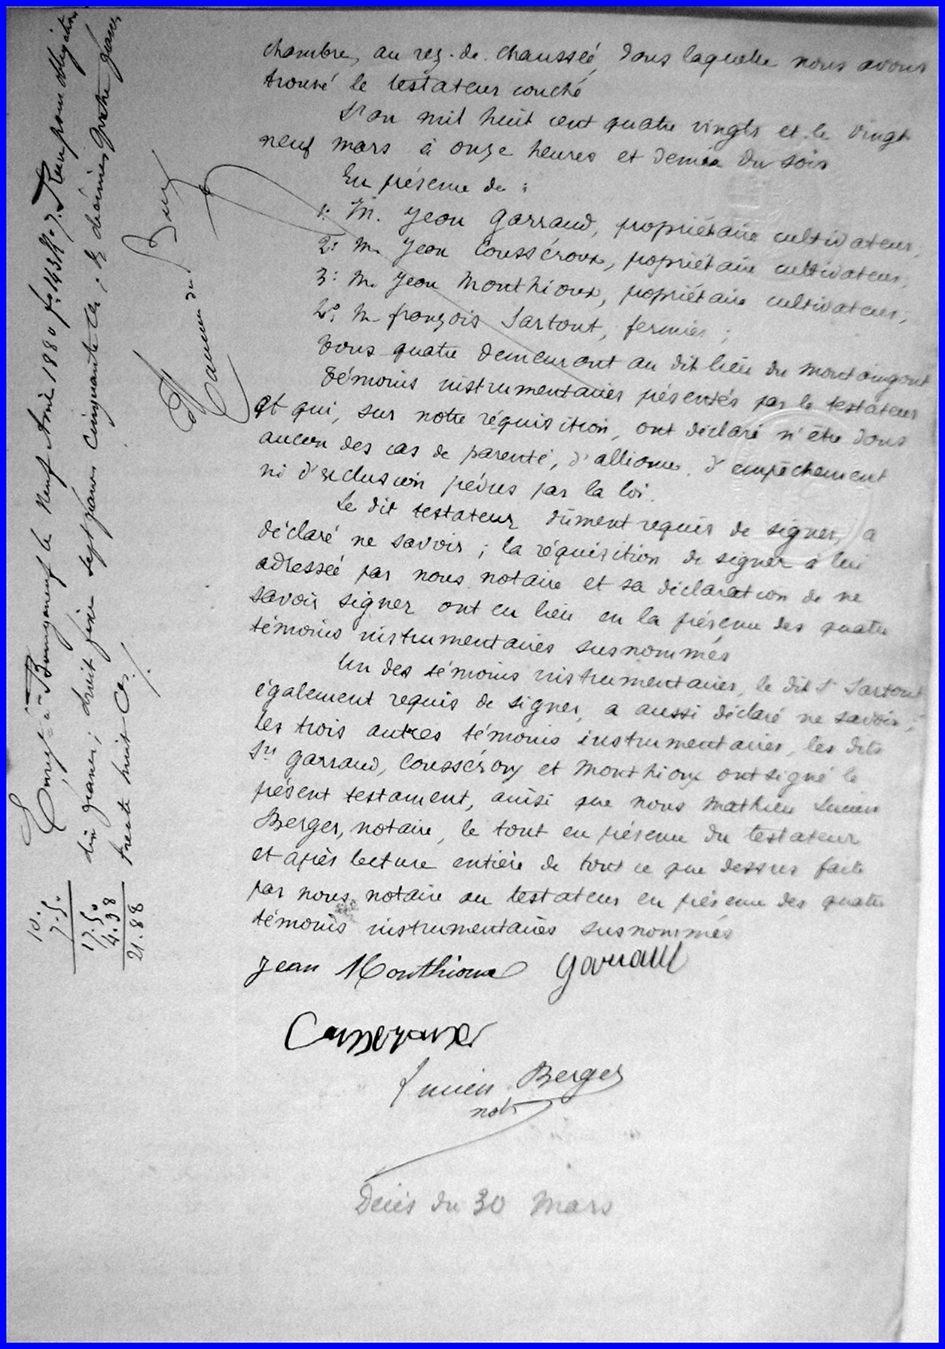 chambre, au rez-de-chaussée, dans laquelle nous avons
trouvé le testateur couché
L'an mil huit cent quatre vingts et le vingt
neuf mars à onze heures et demie du soir
En présence de :
1: M. Jean Garraud, propriétaire cultivateur,
2: M. Jean Cousséroux, propriétaire cultivateur,
3: M. Jean Monthioux, propriétaire cultivateur,
M. françois Sartout, fermier ;
tous quatre demeurant au dit lieu du
témoins instrumentaires présentés par le testateur
et qui, sur notre réquisition, ont déclaré n'être dans
aucun des cas de parenté, d'alliance, d'empêchement
ni d'exclusion prévus par la loi.
Le dit testateur dûment requis de signer, a
déclaré ne savoir ; la réquisition de signer à lui
adressée par nous notaire et sa déclaration de ne
savoir signer ont eu lieu en la présence des quatre
témoins instrumentaires susnommés
Un des témoins instrumentaires, le dit Sr Sartout
également requis de signer, a aussi déclaré ne savoir ;
les trois autres témoins instrumentaires, les dits
Srs Garraud, Cousséroux et Monthioux ont signé le
présent testament, ainsi que nous Mathieu Lucien
Berger, notaire, le tout en présence du testateur
et après lecture entière de tout ce que dessus faite
par nous notaire au testateur en présence des quatre
témoins instrumentaires susnommés
Jean Monthioux Garraud
Lucien Berger
not
Décès du 30 Mars
à Bourganeuf le Neuf Avril 1880 Reçu pour obligation
dix francs ; droit fixe sept francs cinquante ces ; décimes quatre francs
trente huit Ces.
10.
7.50
17.50
4.38
21.88